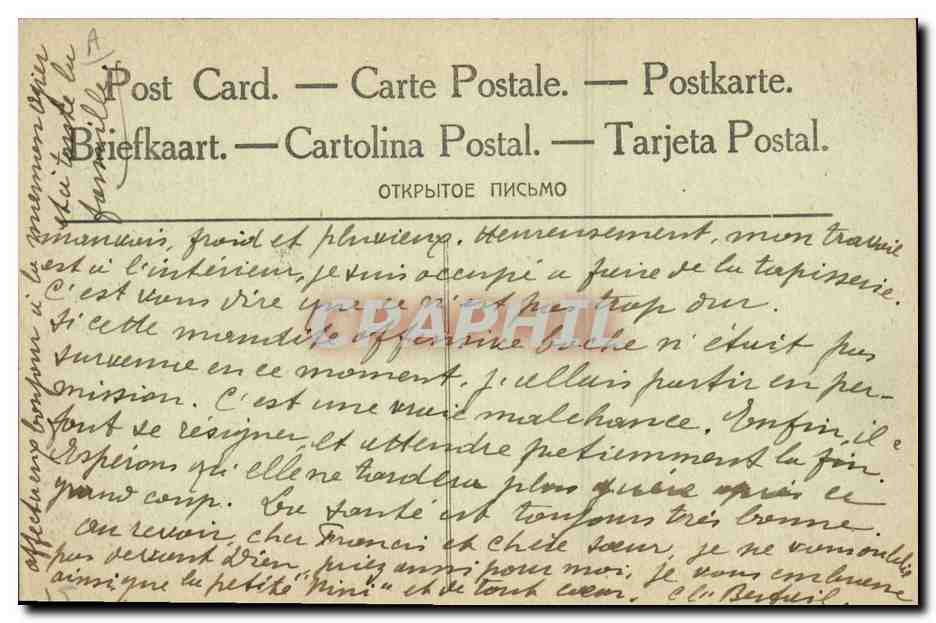 Post Card. — Carte Postale. — Postkarte.
Briefkaart. — Cartolina Postal. — Tarjeta Postal.
ОТКРЫТОЕ ПИСЬМО
mauvais, froid et pluvieux. Heureusement, mon travail
est à l'intérieur, je suis occupé a faire de la tapisserie.
C'est vous dire que ce n'est pas trop dur.
Si cette maudite offensive boche n'était pas
survenue en ce moment, j'allais partir en per-
mission. C'est une vraie malchance. Enfin, il
faut se résigner, et attendre patiemment la fin.
Espérons qu'elle ne tardera plus guère après ce
grand coup. La santé est toujours très bonne.
Au revoir, cher Francis et chère sœur, je ne vous oublie
pas devant Dieu, priez aussi pour moi, je vous embrasse
ainsi que la petite "Nini" et de tout cœur.
affectueux bonjour à la
et à toute la
famille
A
CPAPHIL